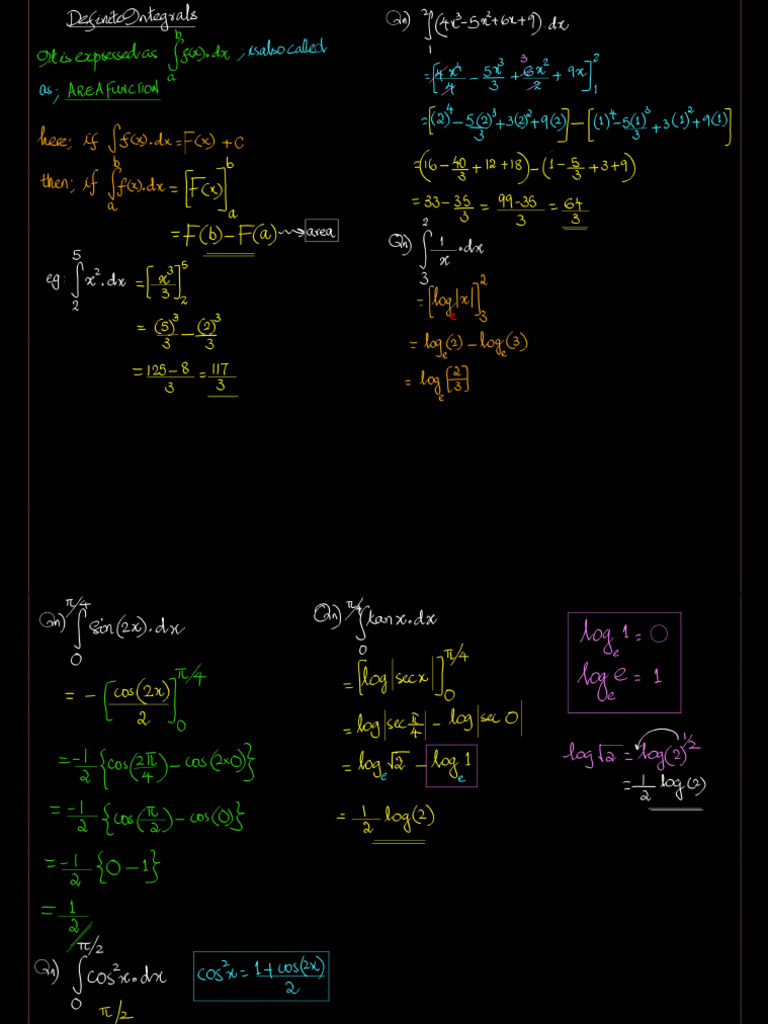 Definite Integrals
It is expressed as ∫ₐᵇ f(x).dx ; is also called
as; AREA FUNCTION
here; if ∫f(x).dx = F(x) + C
then; if ∫ₐᵇ f(x).dx = [F(x)]ₐᵇ
= F(b) - F(a) ⇝ area
eg: ∫₂⁵ x².dx = [x³/3]₂⁵
= (5)³/3 - (2)³/3
= 125-8/3 = 117/3
Qn) ∫₁² (4x³-5x²+6x+9).dx
= [4x⁴/4 - 5x³/3 + 6x²/2 + 9x]₁² 3
= [(2)⁴ - 5(2)³/3 + 3(2)² + 9(2)] - [(1)⁴ - 5(1)³/3 + 3(1)² + 9(1)]
= (16 - 40/3 + 12 + 18) - (1 - 5/3 + 3 + 9)
= 33 - 35/3 = 99-35/3 = 64/3
Qn) ∫₃² 1/x .dx
= [logₑ|x|]₃²
= logₑ(2) - logₑ(3)
= logₑ[2/3]
Qn) ∫₀^π/4 sin(2x).dx
= -[cos(2x)/2]₀^π/4
= -1/2 {cos(2π/4) - cos(2×0)}
= -1/2 {cos(π/2) - cos(0)}
= -1/2 {0 - 1}
= 1/2
Qn) ∫₀^π/4 tanx.dx
= [log|secx|]₀^π/4
= log|sec π/4| - log|sec 0|
= logₑ√2 - logₑ1
= 1/2 log(2)
logₑ1 = 0
logₑe = 1
log√2 = log(2)^1/2
= 1/2 log(2)
Qn) ∫₀^π/2 cos²x.dx
cos²x = 1+cos(2x)/2
π/2